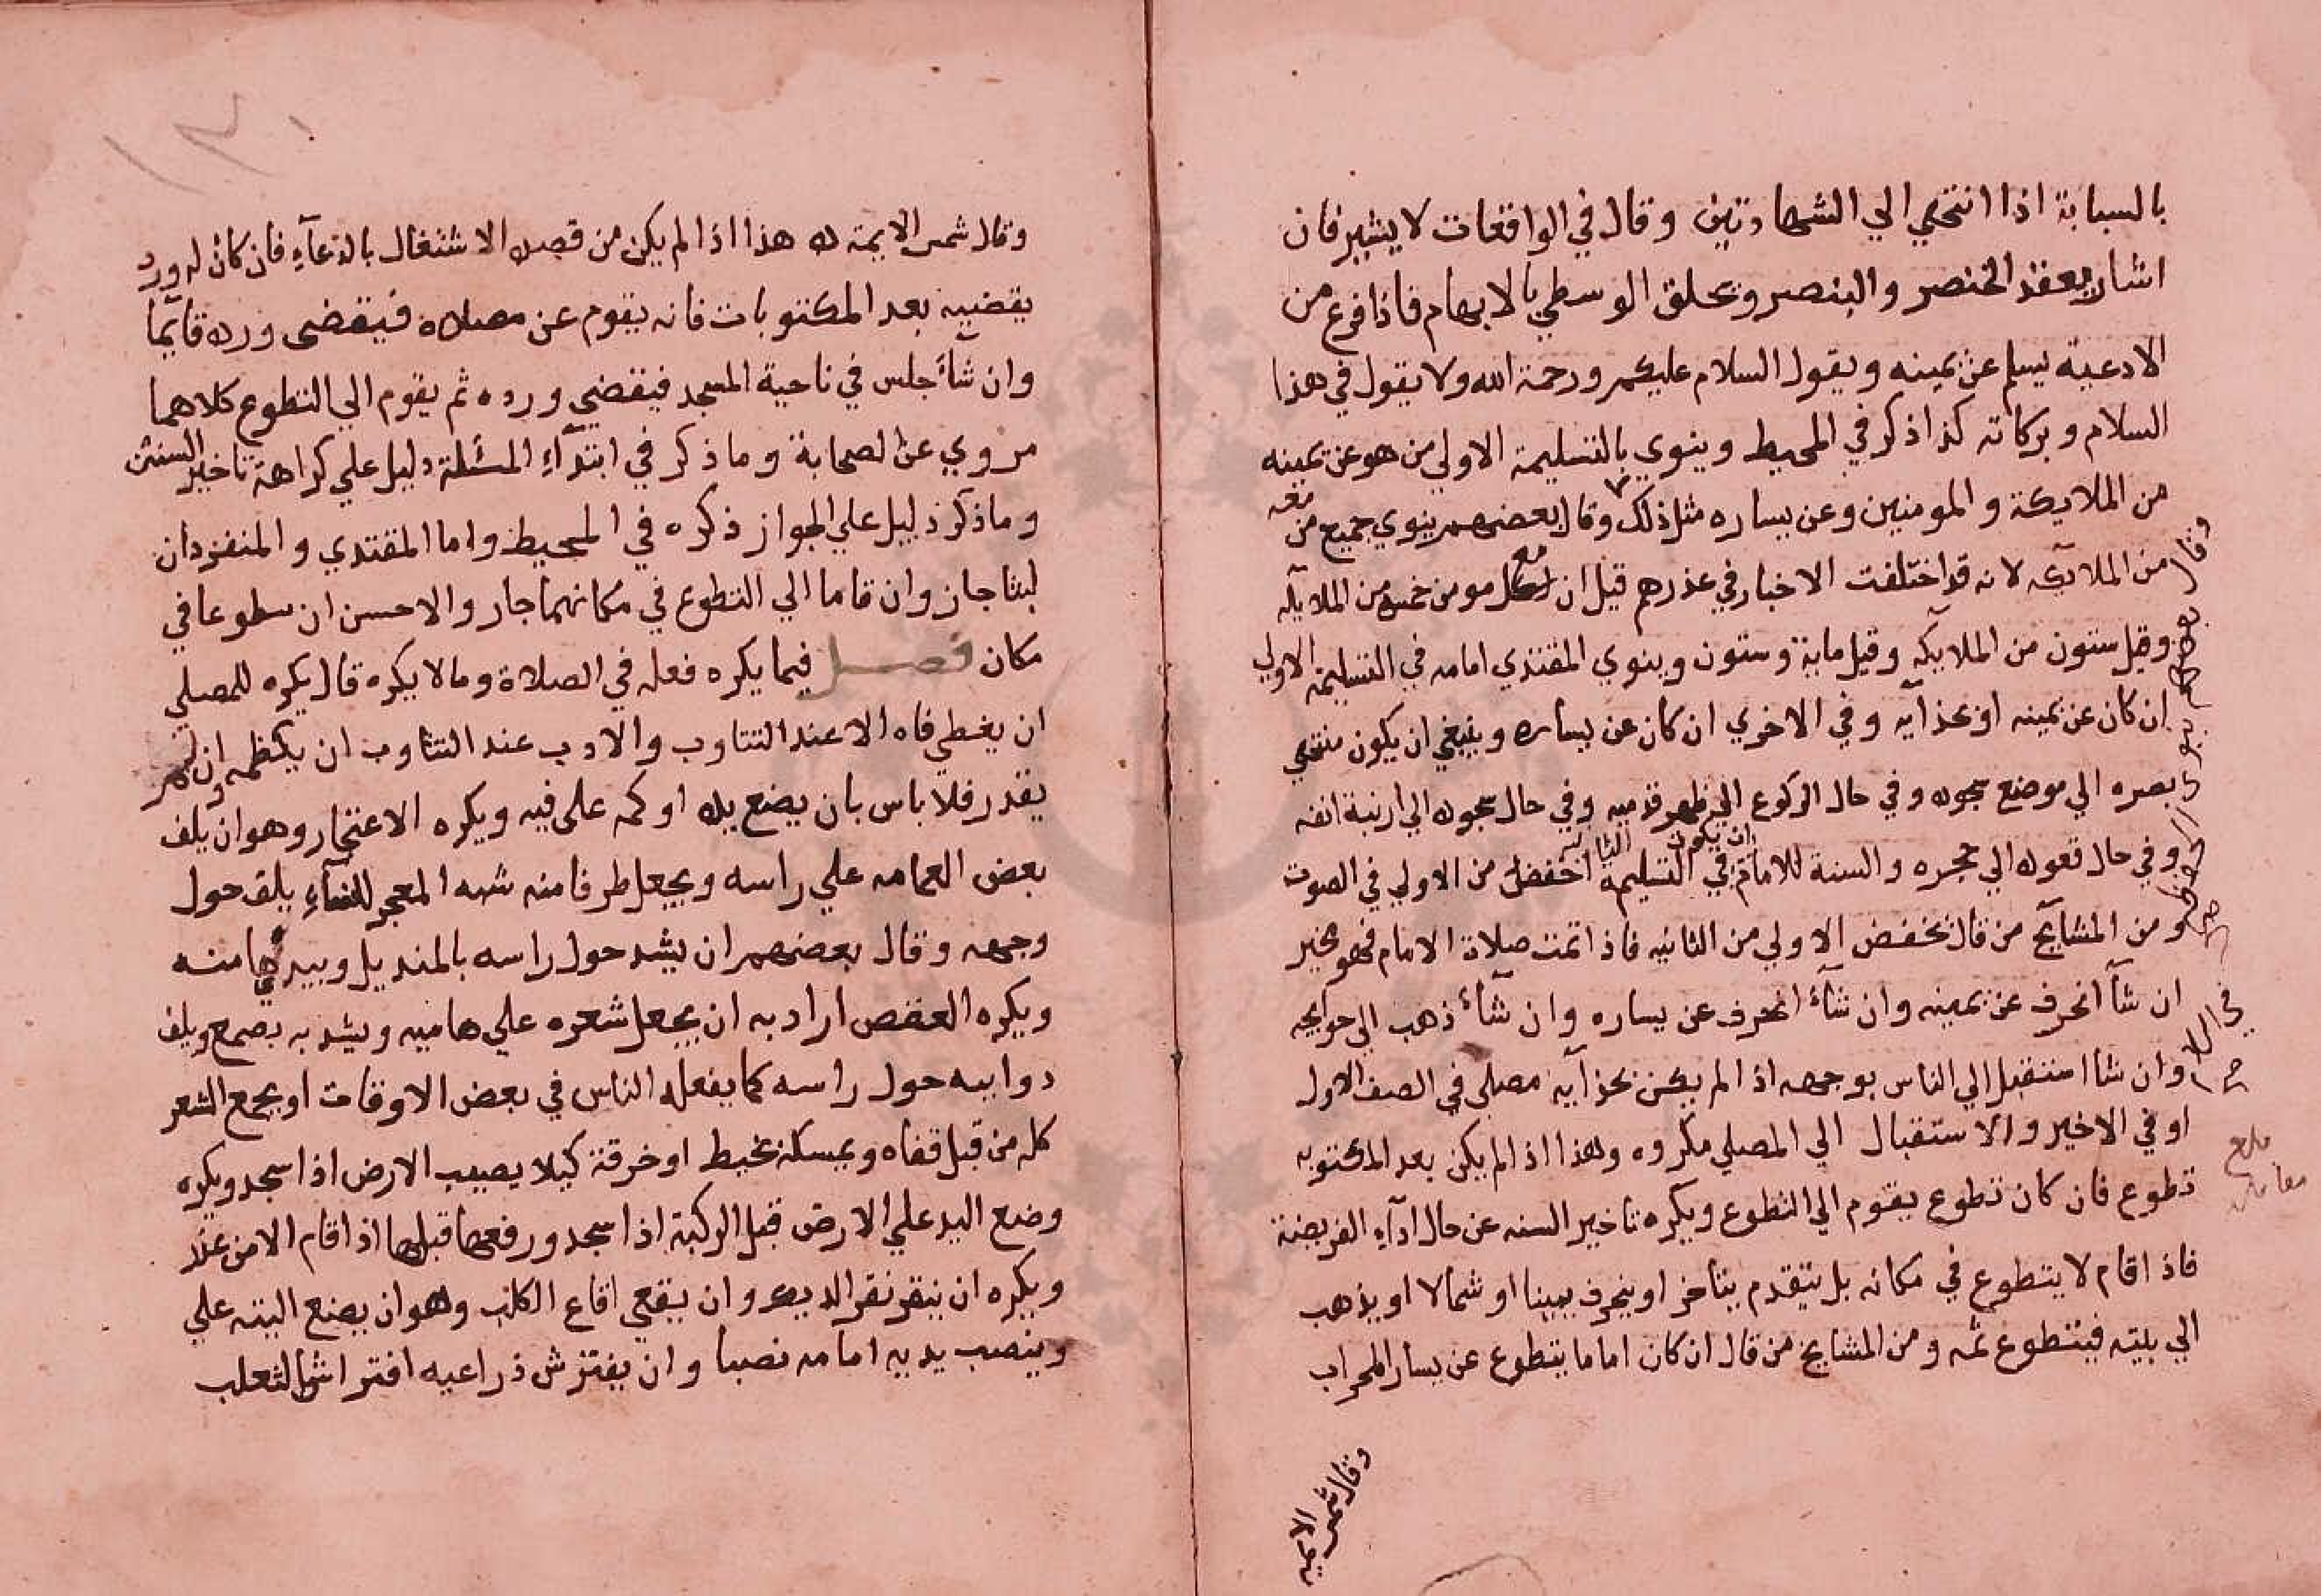 بالسبابة اذا انتهي الي الشهادتين وقال في الواقعات لا يشير فان
اشار يعقد الخنصر والبنصر ويحلق الوسطي بالابهام فاذا فرغ من
الادعية يسلم عن يمينه ويقول السلام عليكم ورحمة الله ولا يقول في هذا
السلام وبركاته كذا ذكر في المحيط وينوي بالتسليمة الاولي من هو عن يمينه
من الملايكة والمومنين وعن يساره مثل ذلك وقال بعضهم ينوي جميع من معه
من الملايكه لانه قد اختلفت الاخبار في عددهم قيل ان مع كل مومن خمس من الملايكه
وقيل ستون من الملايكه وقيل ماية وستون وينوي المقتدي امامه في التسليمة الاولي
ان كان عن يمينه او بحذآيه وفي الاخري ان كان عن يساره وينبغي ان يكون منتهي
بصره الي موضع سجوده وفي حال الركوع الي ظهر قدميه وفي حال سجوده الي ارنبة انفه
وفي حال قعوده الي حجره والسنة للامام ان يكون في التسليمة الثانيه اخفض من الاولي في الصوت
ومن المشايخ من قال يخفض الاولي من الثانيه فاذا تمت صلاة الامام فهو مخير
ان شآ انحرف عن يمينه وان شآء انحرف عن يساره وان شآء ذهب الي حوايجه
وان شا استقبل الي الناس بوجهه اذا لم يكن بحذآيه مصلي في الصف الاول
او في الاخير والاستقبال الي المصلي مكروه وهذا اذا لم يكن بعد المكتوبه
تطوع فان كان تطوع يقوم الي التطوع ويكره تاخير السنه عن حال ادآء الفريضة
فاذا قام لا يتطوع في مكانه بل يتقدم يتاخر او ينحرف يمينا او شمالا او يذهب
الي بيته فيتطوع ثمه ومن المشايخ من قال ان كان اماما يتطوع عن يسار المحراب
وقال شمس الايمة
وقال بعضهم ينوي
في السلام
بلغ مقابله
١٣٠
وقال شمس الايمة هذا اذا لم يكن من قصده الاشتغال بالدعآء فان كان له ورد
يقضيه بعد المكتوبات فانه يقوم عن مصلاه فيقضي ورده قآيما
وان شآء جلس في ناحية المسجد فيقضي ورده ثم يقوم الي التطوع كلاهما
مروي عن الصحابة وما ذكر في ابتدآء المسئلة دليل علي كراهة تاخير السنن
وما ذكر دليل علي الجواز ذكره في المحيط واما المقتدي والمنفرد ان
لبثا جاز وان قاما الي التطوع في مكانهما جاز والاحسن ان يتطوعا في
مكان فصل فيما يكره فعله في الصلاة وما لا يكره قال يكره للمصلي
ان يغطي فاه الا عند التثاوب والادب عند التثاوب ان يكظمه وان لم
يقدر فلا باس بان يضع يده او كمه علي فيه ويكره الاعتجار وهو ان يلف
بعض العمامه علي راسه ويجعل طرفا منه شبه المعجر للنسآء يلف حول
وجهه وقال بعضهم ان يشد حول راسه بالمنديل ويبدي هامته
ويكره العقص اراد به ان يجعل شعره علي هامته ويشد به بصمغ ويلف
دوابيه حول راسه كما يفعله الناس في بعض الاوقات او يجمع الشعر
كله من قبل قفاه ويمسكه بخيط او خرقة كيلا يصيب الارض اذا سجد ويكره
وضع اليد علي الارض قبل الركبة اذا سجد ورفعها قبلها اذا قام الا من عذر
ويكره ان ينقر نقر الديك وان يقعي اقاع الكلب وهو ان يضع اليته علي
وينصب يديه امامه نصبا وان يفترش ذراعيه افتراش الثعلب